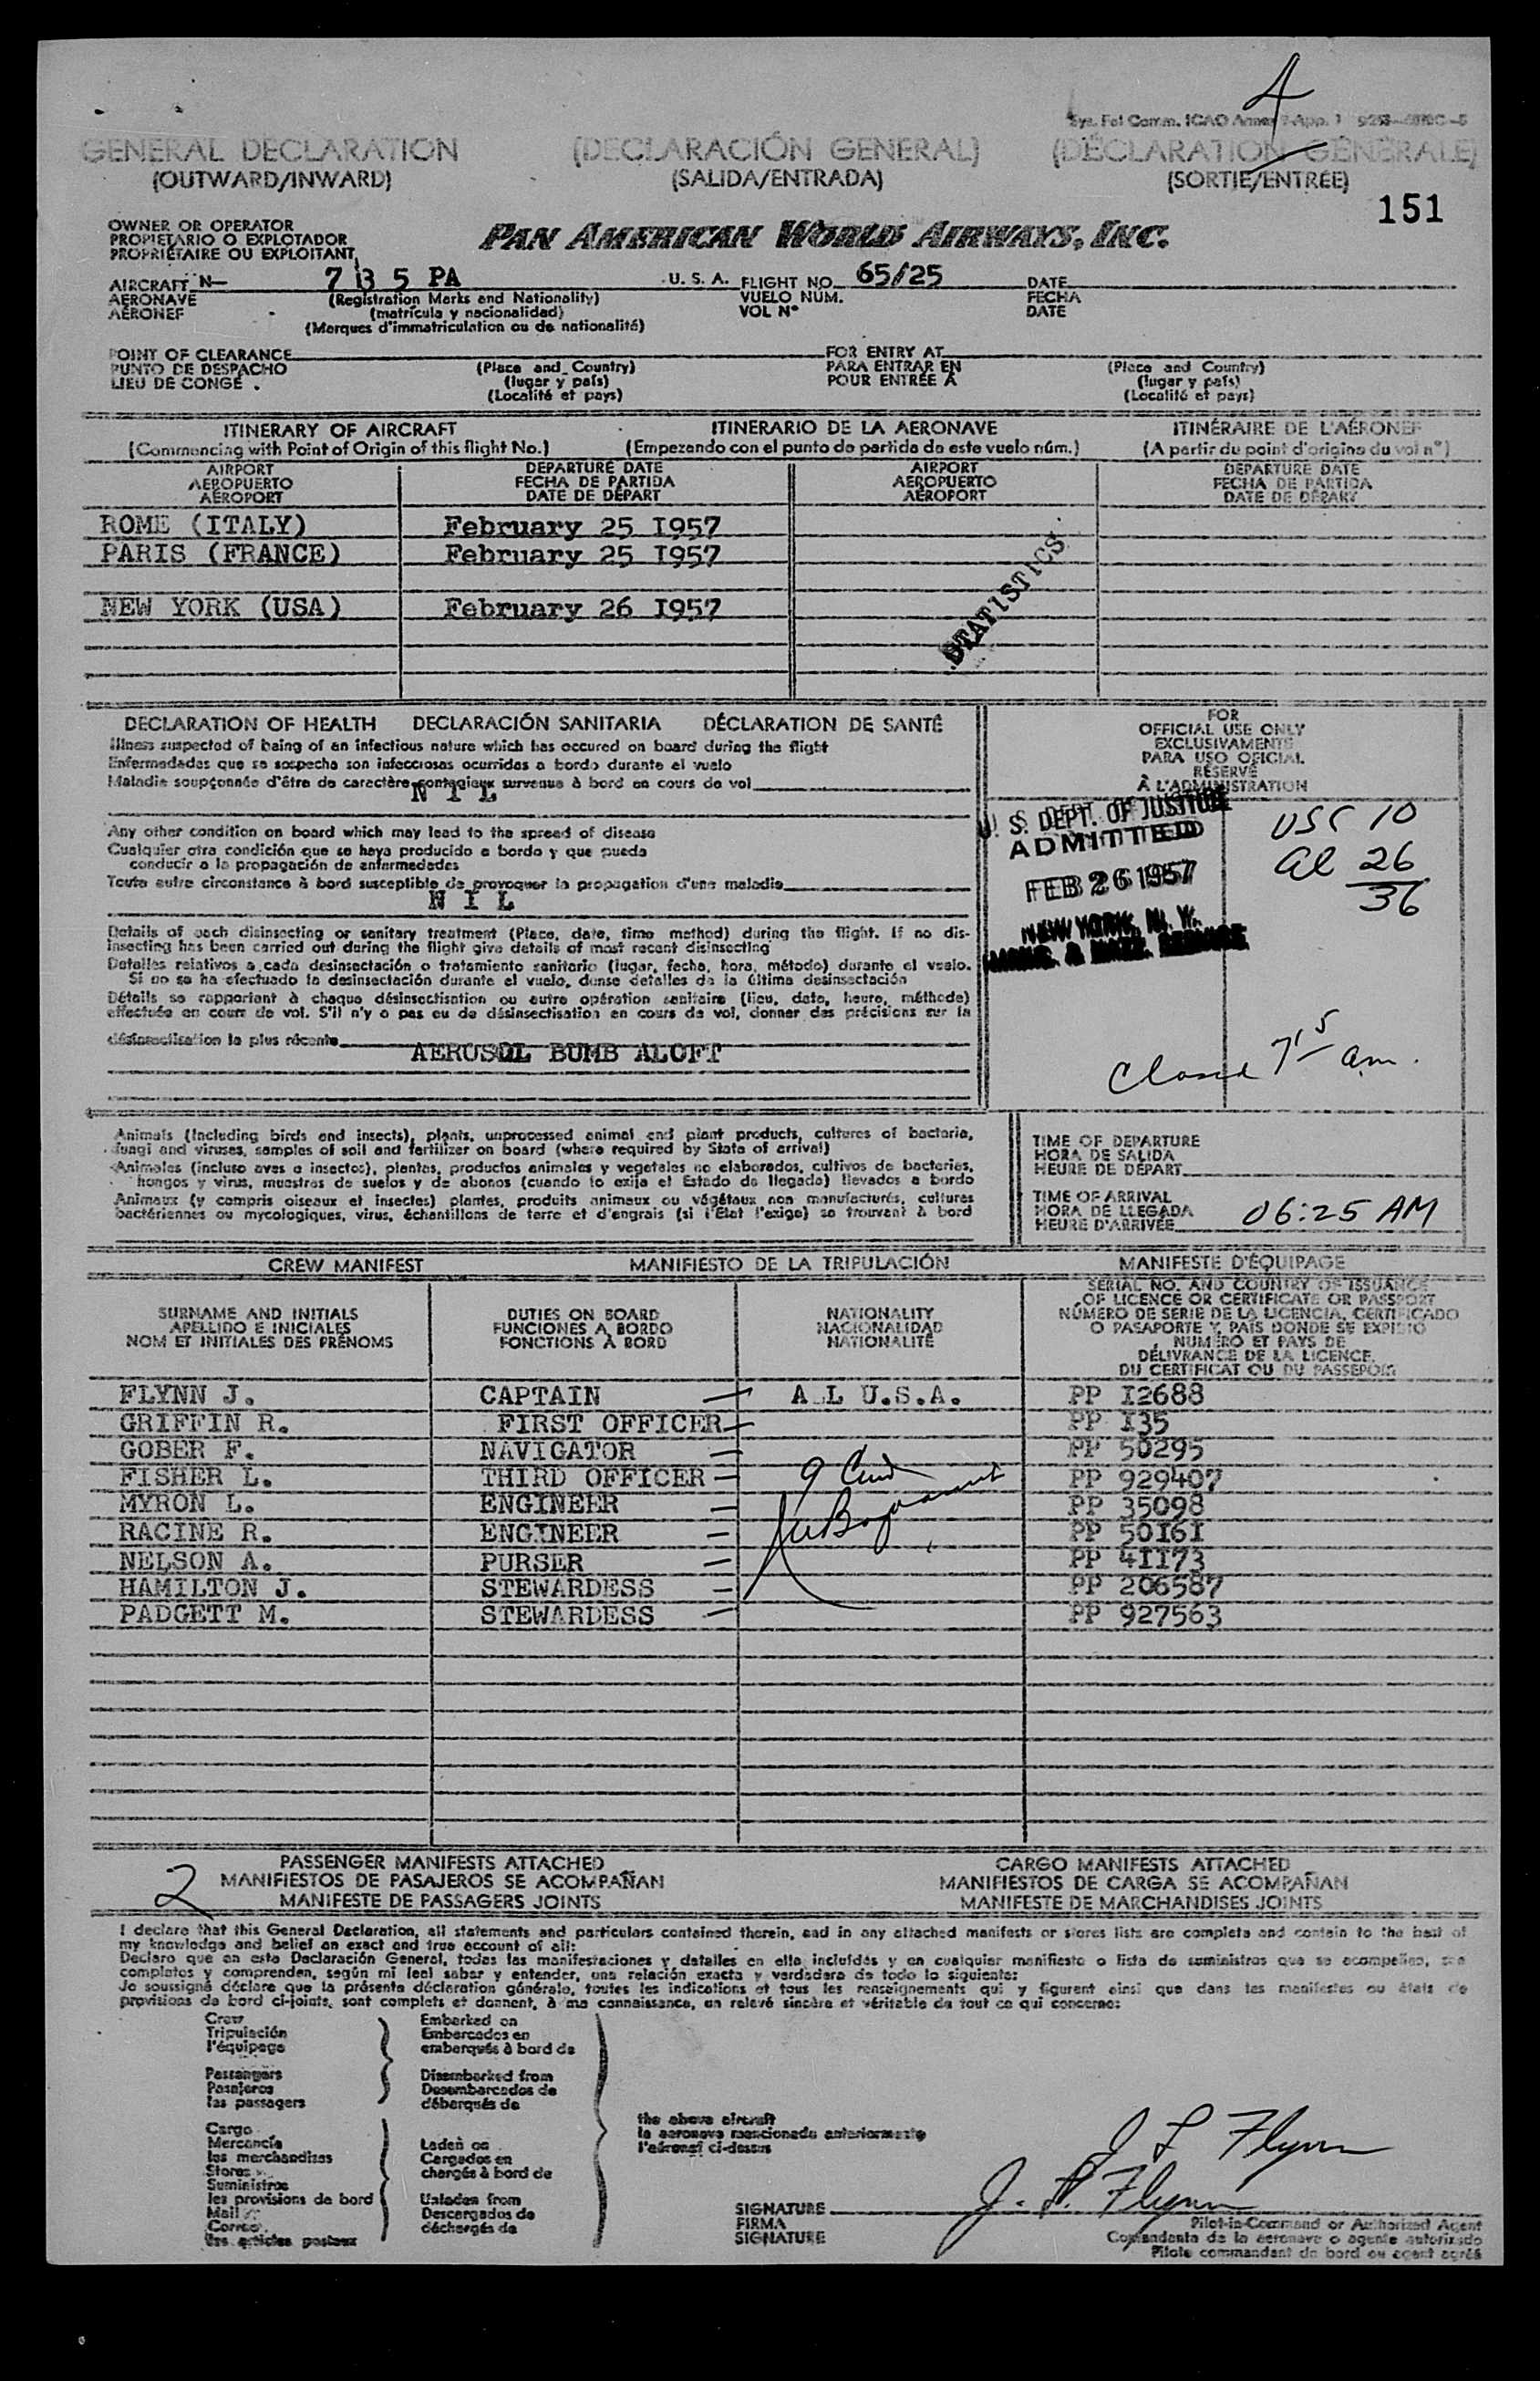 A
Sys. Fol Comm. ICAO Annex 9-App. 1
GENERAL DECLARATION (DECLARACIÓN GENERAL) (DÉCLARATION GÉNÉRALE)
(OUTWARD/INWARD) (SALIDA/ENTRADA) (SORTIE/ENTRÉE)
151
OWNER OR OPERATOR
PROPIETARIO O EXPLOTADOR
PROPRIÉTAIRE OU EXPLOITANT
PAN AMERICAN WORLD AIRWAYS, INC.
AIRCRAFT N— 7 B 5 PA U. S. A. FLIGHT NO. 65/25 DATE
AERONAVE (Registration Marks and Nationality) VUELO NÚM. FECHA
AÉRONEF (matrícula y nacionalidad) VOL N° DATE
(Marques d'immatriculation ou de nationalité)
POINT OF CLEARANCE FOR ENTRY AT
PUNTO DE DESPACHO (Place and Country) PARA ENTRAR EN (Place and Country)
LIEU DE CONGÉ (lugar y país) POUR ENTRÉE À (lugar y país)
(Localité et pays) (Localité et pays)
ITINERARY OF AIRCRAFT ITINERARIO DE LA AERONAVE ITINÉRAIRE DE L'AÉRONEF
(Commencing with Point of Origin of this flight No.) (Empezando con el punto de partida de este vuelo núm.) (A partir du point d'origine du vol n°)
AIRPORT DEPARTURE DATE AIRPORT DEPARTURE DATE
AEROPUERTO FECHA DE PARTIDA AEROPUERTO FECHA DE PARTIDA
AÉROPORT DATE DE DÉPART AÉROPORT DATE DE DÉPART
ROME (ITALY) February 25 I957
PARIS (FRANCE) February 25 I957
NEW YORK (USA) February 26 I957
STATISTICS
DECLARATION OF HEALTH DECLARACIÓN SANITARIA DÉCLARATION DE SANTÉ
Illness suspected of being of an infectious nature which has occured on board during the flight
Enfermedades que se sospecha son infecciosas ocurridas a bordo durante el vuelo
Maladie soupçonnée d'être de caractère contagieux survenue à bord en cours de vol
N I L
Any other condition on board which may lead to the spread of disease
Cualquier otra condición que se haya producido a bordo y que pueda
conducir a la propagación de enfermedades
Toute autre circonstance à bord susceptible de provoquer la propagation d'une maladie
N I L
Details of each disinsecting or sanitary treatment (Place, date, time method) during the flight. If no dis-
insecting has been carried out during the flight give details of most recent disinsecting
Detalles relativos a cada desinsectación o tratamiento sanitario (lugar, fecha, hora, método) durante el vuelo.
Si no se ha efectuado la desinsectación durante el vuelo, dense detalles de la última desinsectación
Détails se rapportant à chaque désinsectisation ou autre opération sanitaire (lieu, date, heure, méthode)
effectuée en cours de vol. S'il n'y a pas eu de désinsectisation en cours de vol, donner des précisions sur la
désinsectisation la plus récente
AEROSOL BUMB ALOFT
FOR
OFFICIAL USE ONLY
EXCLUSIVAMENTE
PARA USO OFICIAL
RÉSERVÉ
À L'ADMINISTRATION
U. S. DEPT. OF JUSTICE
ADMITTED
FEB 26 1957
NEW YORK, N. Y.
IMMIG. & NATZ. SERVICE
USC 10
al 26
36
Closed 7 15 am.
Animals (Including birds and insects), plants, unprocessed animal and plant products, cultures of bacteria,
fungi and viruses, samples of soil and fertilizer on board (where required by State of arrival)
Animales (incluso aves e insectos), plantas, productos animales y vegetales no elaborados, cultivos de bacterias,
hongos y virus, muestras de suelos y de abonos (cuando lo exija el Estado de llegada) llevados a bordo
Animaux (y compris oiseaux et insectes) plantes, produits animaux ou végétaux non manufacturés, cultures
bactériennes ou mycologiques, virus, échantillons de terre et d'engrais (si l'État l'exige) se trouvant à bord
TIME OF DEPARTURE
HORA DE SALIDA
HEURE DE DÉPART
TIME OF ARRIVAL
HORA DE LLEGADA
HEURE D'ARRIVÉE 06:25 AM
CREW MANIFEST MANIFIESTO DE LA TRIPULACIÓN MANIFESTE D'ÉQUIPAGE
SURNAME AND INITIALS
APELLIDO E INICIALES
NOM ET INITIALES DES PRÉNOMS
DUTIES ON BOARD
FUNCIONES A BORDO
FONCTIONS À BORD
NATIONALITY
NACIONALIDAD
NATIONALITÉ
SERIAL NO. AND COUNTRY OF ISSUANCE
OF LICENCE OR CERTIFICATE OR PASSPORT
NÚMERO DE SERIE DE LA LICENCIA, CERTIFICADO
O PASAPORTE Y PAÍS DONDE SE EXPIDIÓ
NUMÉRO ET PAYS DE
DÉLIVRANCE DE LA LICENCE,
DU CERTIFICAT OU DU PASSEPORT
FLYNN J. CAPTAIN — A L U.S.A. PP I2688
GRIFFIN R. FIRST OFFICER — PP I35
GOBER F. NAVIGATOR — PP 50295
FISHER L. THIRD OFFICER — PP 929407
MYRON L. ENGINEER — PP 35098
RACINE R. ENGINEER — PP 50I6I
NELSON A. PURSER — PP 4II73
HAMILTON J. STEWARDESS — PP 206587
PADGETT M. STEWARDESS — PP 927563
9
2
PASSENGER MANIFESTS ATTACHED CARGO MANIFESTS ATTACHED
MANIFIESTOS DE PASAJEROS SE ACOMPAÑAN MANIFIESTOS DE CARGA SE ACOMPAÑAN
MANIFESTE DE PASSAGERS JOINTS MANIFESTE DE MARCHANDISES JOINTS
I declare that this General Declaration, all statements and particulars contained therein, and in any attached manifests or stores lists are complete and contain to the best of
my knowledge and belief an exact and true account of all:
Declaro que en esta Declaración General, todas las manifestaciones y detalles en ella incluídos y en cualquier manifiesto o lista de suministros que se acompañen, son
completos y comprenden, según mi leal saber y entender, una relación exacta y verdadera de todo lo siguiente:
Je soussigné déclare que la présente déclaration générale, toutes les indications et tous les renseignements qui y figurent ainsi que dans les manifestes ou états de
provisions de bord ci-joints, sont complets et donnent, à ma connaissance, un relevé sincère et véritable de tout ce qui concerne:
Crew
Tripulación
l'équipage
Passengers
Pasajeros
les passagers
Embarked on
Embarcados en
embarqués à bord de
Disembarked from
Desembarcados de
débarqués de
Cargo
Mercancía
les marchandises
Stores
Suministros
les provisions de bord
Mail
Correo
les articles postaux
Laden on
Cargados en
chargés à bord de
Unladen from
Descargados de
déchargés de
the above aircraft
la aeronave mencionada anteriormente
l'aéronef ci-dessus
J F Flynn
J. F. Flynn
SIGNATURE
FIRMA
SIGNATURE
Pilot-in-Command or Authorized Agent
Comandante de la aeronave o agente autorizado
Pilote commandant de bord ou agent agréé